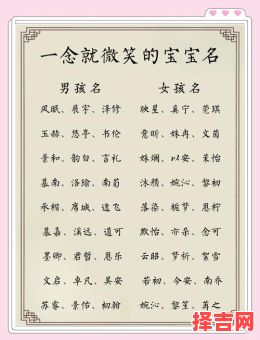 一念就微笑的宝宝名
男孩名 女孩名
风眠、展宇、泽修 映星、奚宁、莞琪
玉赫、悠亭、书伦 意昕、姝冉、文茵
景和、韵白、言礼 姝斓、以安、茉怡
慕南、洛瑜、南荀 洙颜、婉沁、黎初
承楷、席城、逸飞 落染、栀梦、恩柠
慕嘉、溪远、道可 默怡、亦朵、念可
墨卿、君哲、恩乐 云昭、梦祈、絮雪
文启、卓凡、昊安 若初、今安、南乔
苏睿、景佑、初翰 婉沁、黎笙、苒之
择吉网